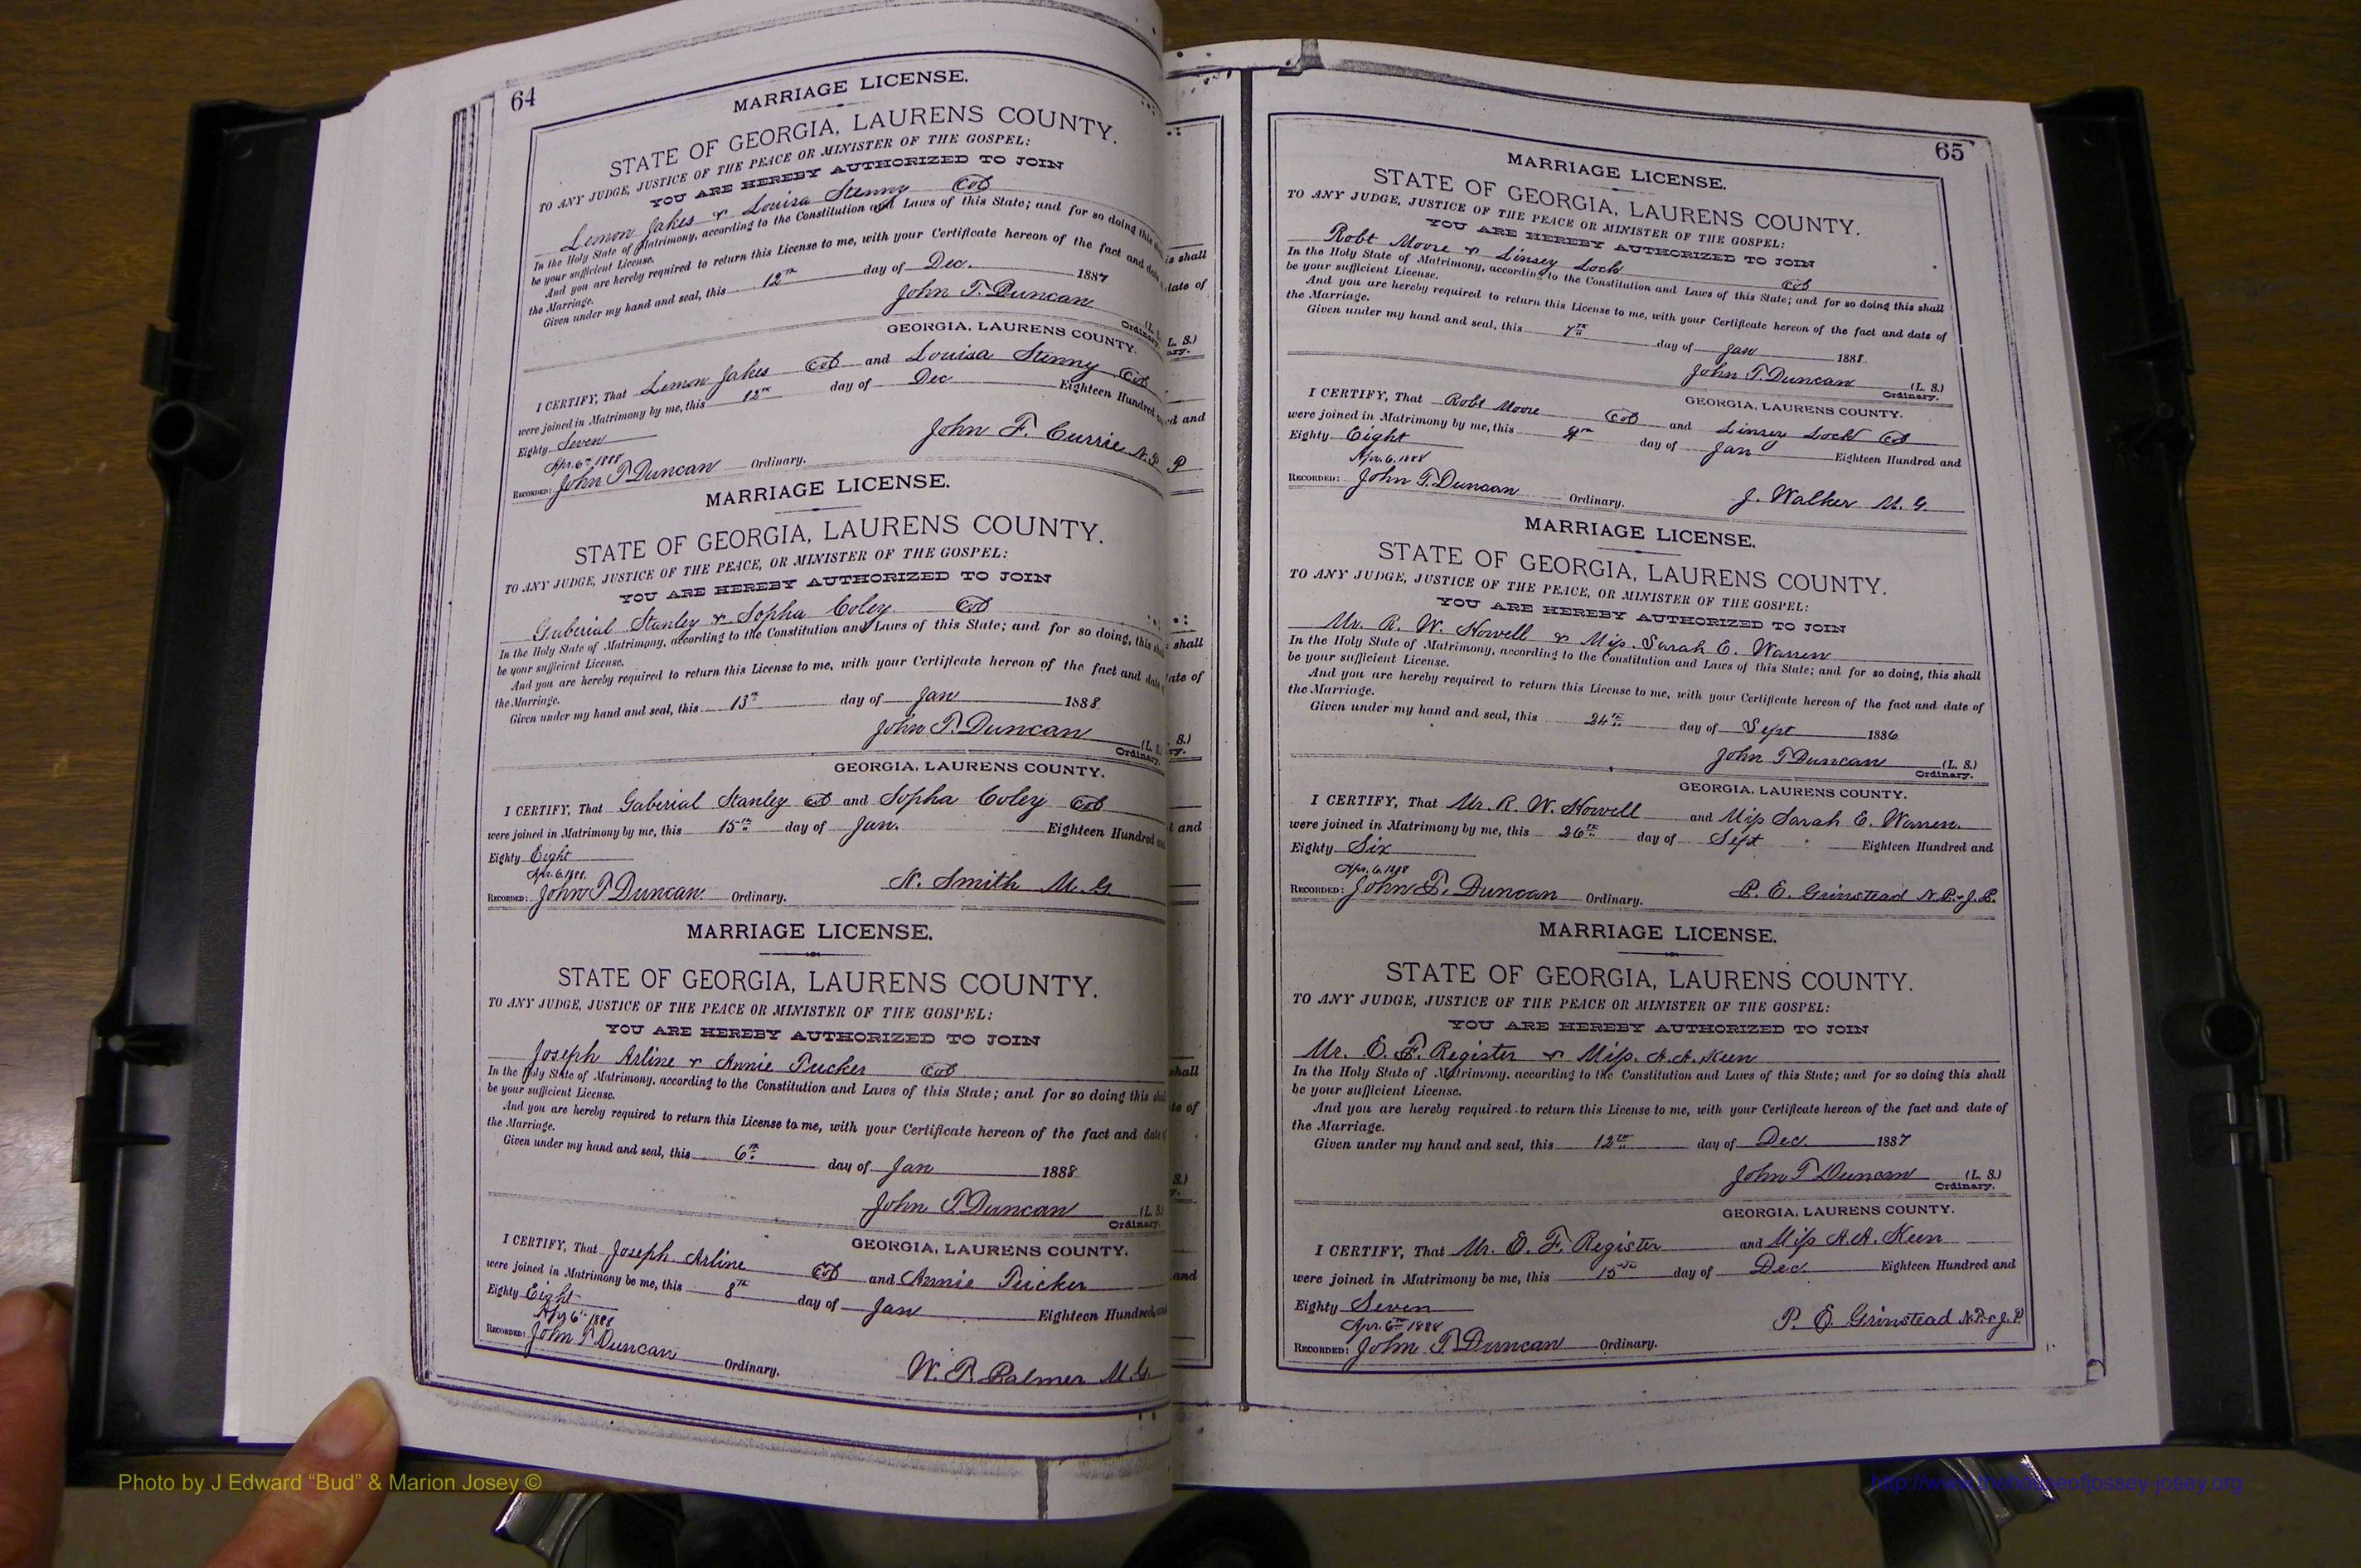 64
MARRIAGE LICENSE.
STATE OF GEORGIA, LAURENS COUNTY.
TO ANY JUDGE, JUSTICE OF THE PEACE OR MINISTER OF THE GOSPEL:
YOU ARE HEREBY AUTHORIZED TO JOIN
Lemon Jakes & Louisa Stenny Col
In the Holy State of Matrimony, according to the Constitution and Laws of this State; and for so doing this
be your sufficient License.
And you are hereby required to return this License to me, with your Certificate hereon of the fact and date
the Marriage.
Given under my hand and seal, this 12th day of Dec. 1887
John T. Duncan (L.
Ordinary.
GEORGIA, LAURENS COUNTY.
I CERTIFY, That Lemon Jakes Col and Louisa Stenny Col
were joined in Matrimony by me, this 12th day of Dec Eighteen Hundred
Eighty Seven
Apr. 6th 1888
John F. Currie N.P.
RECORDED: John T Duncan Ordinary.
MARRIAGE LICENSE.
STATE OF GEORGIA, LAURENS COUNTY.
TO ANY JUDGE, JUSTICE OF THE PEACE, OR MINISTER OF THE GOSPEL:
YOU ARE HEREBY AUTHORIZED TO JOIN
Gaberial Stanley & Sopha Coley Col
In the Holy State of Matrimony, according to the Constitution and Laws of this State; and for so doing, this
be your sufficient License.
And you are hereby required to return this License to me, with your Certificate hereon of the fact and date
the Marriage.
Given under my hand and seal, this 13th day of Jan 1888
John T. Duncan (L. S.)
Ordinary.
GEORGIA, LAURENS COUNTY.
I CERTIFY, That Gaberial Stanley Col and Sopha Coley Col
were joined in Matrimony by me, this 15th day of Jan. Eighteen Hundred
Eighty Eight
Apr. 6. 1888.
N. Smith M. G.
RECORDED: John T Duncan. Ordinary.
MARRIAGE LICENSE.
STATE OF GEORGIA, LAURENS COUNTY.
TO ANY JUDGE, JUSTICE OF THE PEACE OR MINISTER OF THE GOSPEL:
YOU ARE HEREBY AUTHORIZED TO JOIN
Joseph Arline & Annie Tucker Col
In the Holy State of Matrimony, according to the Constitution and Laws of this State; and for so doing this
be your sufficient License.
And you are hereby required to return this License to me, with your Certificate hereon of the fact and date
the Marriage.
Given under my hand and seal, this 6th day of Jan 1888
John T. Duncan (L. S.)
Ordinary.
GEORGIA, LAURENS COUNTY.
I CERTIFY, That Joseph Arline Col and Annie Tucker
were joined in Matrimony be me, this 8th day of Jan Eighteen Hundred,
Eighty Eight
Apr 6th 1888
RECORDED: John T Duncan Ordinary.
W. P. Palmer M.G.
65
MARRIAGE LICENSE.
STATE OF GEORGIA, LAURENS COUNTY.
TO ANY JUDGE, JUSTICE OF THE PEACE OR MINISTER OF THE GOSPEL:
YOU ARE HEREBY AUTHORIZED TO JOIN
Robt Moore & Linsey Lock Col
In the Holy State of Matrimony, according to the Constitution and Laws of this State; and for so doing this shall
be your sufficient License.
And you are hereby required to return this License to me, with your Certificate hereon of the fact and date of
the Marriage.
Given under my hand and seal, this 7th day of Jan 1888
John T. Duncan (L. S.)
Ordinary.
GEORGIA, LAURENS COUNTY.
I CERTIFY, That Robt Moore Col and Linsey Lock Col
were joined in Matrimony by me, this day of Jan Eighteen Hundred and
Eighty Eight
Apr. 6. 1888
RECORDED: John T. Duncan Ordinary.
J. Walker M. G.
MARRIAGE LICENSE.
STATE OF GEORGIA, LAURENS COUNTY.
TO ANY JUDGE, JUSTICE OF THE PEACE, OR MINISTER OF THE GOSPEL:
YOU ARE HEREBY AUTHORIZED TO JOIN
Mr. R. W. Howell & Miss. Sarah E. Warren
In the Holy State of Matrimony, according to the Constitution and Laws of this State; and for so doing, this shall
be your sufficient License.
And you are hereby required to return this License to me, with your Certificate hereon of the fact and date of
the Marriage.
Given under my hand and seal, this 24th day of Sept 1886
John T Duncan (L. S.)
Ordinary.
GEORGIA, LAURENS COUNTY.
I CERTIFY, That Mr. R. W. Howell and Miss Sarah E. Warren.
were joined in Matrimony by me, this 26th day of Sept Eighteen Hundred and
Eighty Six
Apr. 6, 1888
RECORDED: John T. Duncan Ordinary.
P. E. Grinstead N.P. & J.P.
MARRIAGE LICENSE.
STATE OF GEORGIA, LAURENS COUNTY.
TO ANY JUDGE, JUSTICE OF THE PEACE OR MINISTER OF THE GOSPEL:
YOU ARE HEREBY AUTHORIZED TO JOIN
Mr. E. F. Register & Miss. A. A. Keen
In the Holy State of Matrimony, according to the Constitution and Laws of this State; and for so doing this shall
be your sufficient License.
And you are hereby required to return this License to me, with your Certificate hereon of the fact and date of
the Marriage.
Given under my hand and seal, this 12th day of Dec. 1887
John T Duncan (L. S.)
Ordinary.
GEORGIA, LAURENS COUNTY.
I CERTIFY, That Mr. E. F. Register and Miss A. A. Keen
were joined in Matrimony be me, this 15th day of Dec. Eighteen Hundred and
Eighty Seven
Apr. 6th 1888
P. E. Grinstead N.P. & J.P.
RECORDED: John T. Duncan Ordinary.
Photo by J Edward “Bud” & Marion Josey ©
http://www.thehouseofjossey-josey.org